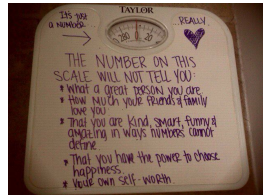 TAYLOR
It's just
a number
REALLY
280
20
THE NUMBER ON THIS
SCALE WILL NOT TELL YOU:
* What a great person you are
* How much your friends & family
love you
* That you are kind, smart, funny &
amazing in ways numbers cannot
define
* That you have the power to choose
happiness
* Your own self-worth